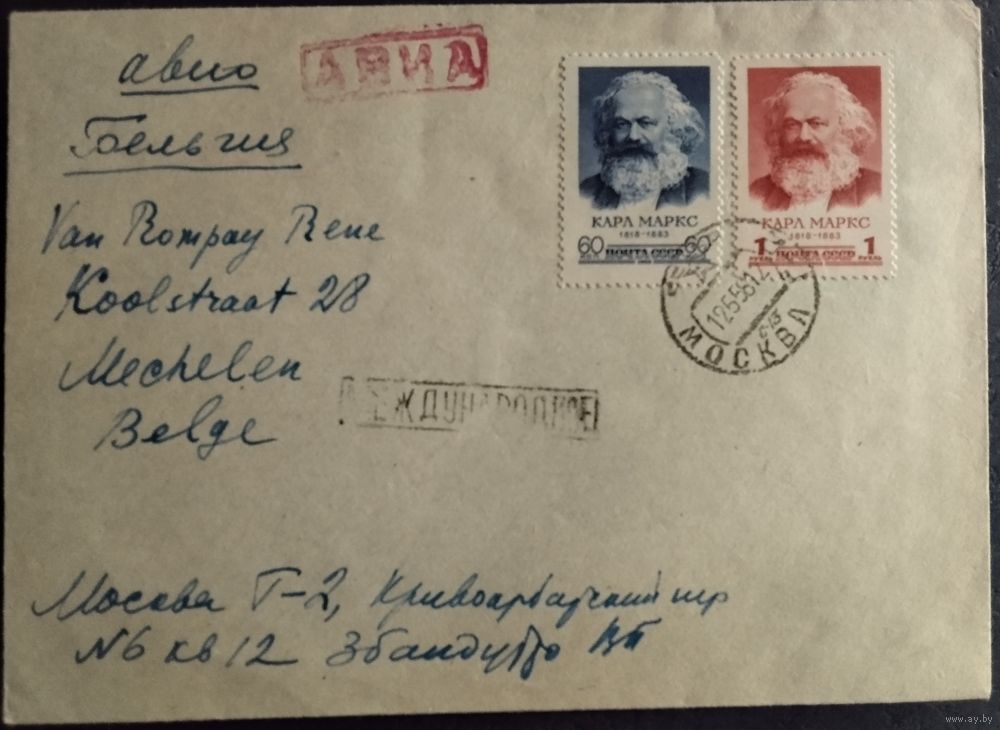 авиа
АВИА
Бельгия
Van Rompay Rene
Koolstraat 28
Mechelen
Belge
КАРЛ МАРКС
1818-1883
60 ПОЧТА СССР 60
КАРЛ МАРКС
1818-1883
1 ПОЧТА СССР 1
МОСКВА
МЕЖДУНАРОДНОЕ
Москва Г-2, Кривоарбатский пер
N6 кв 12
www.ay.by